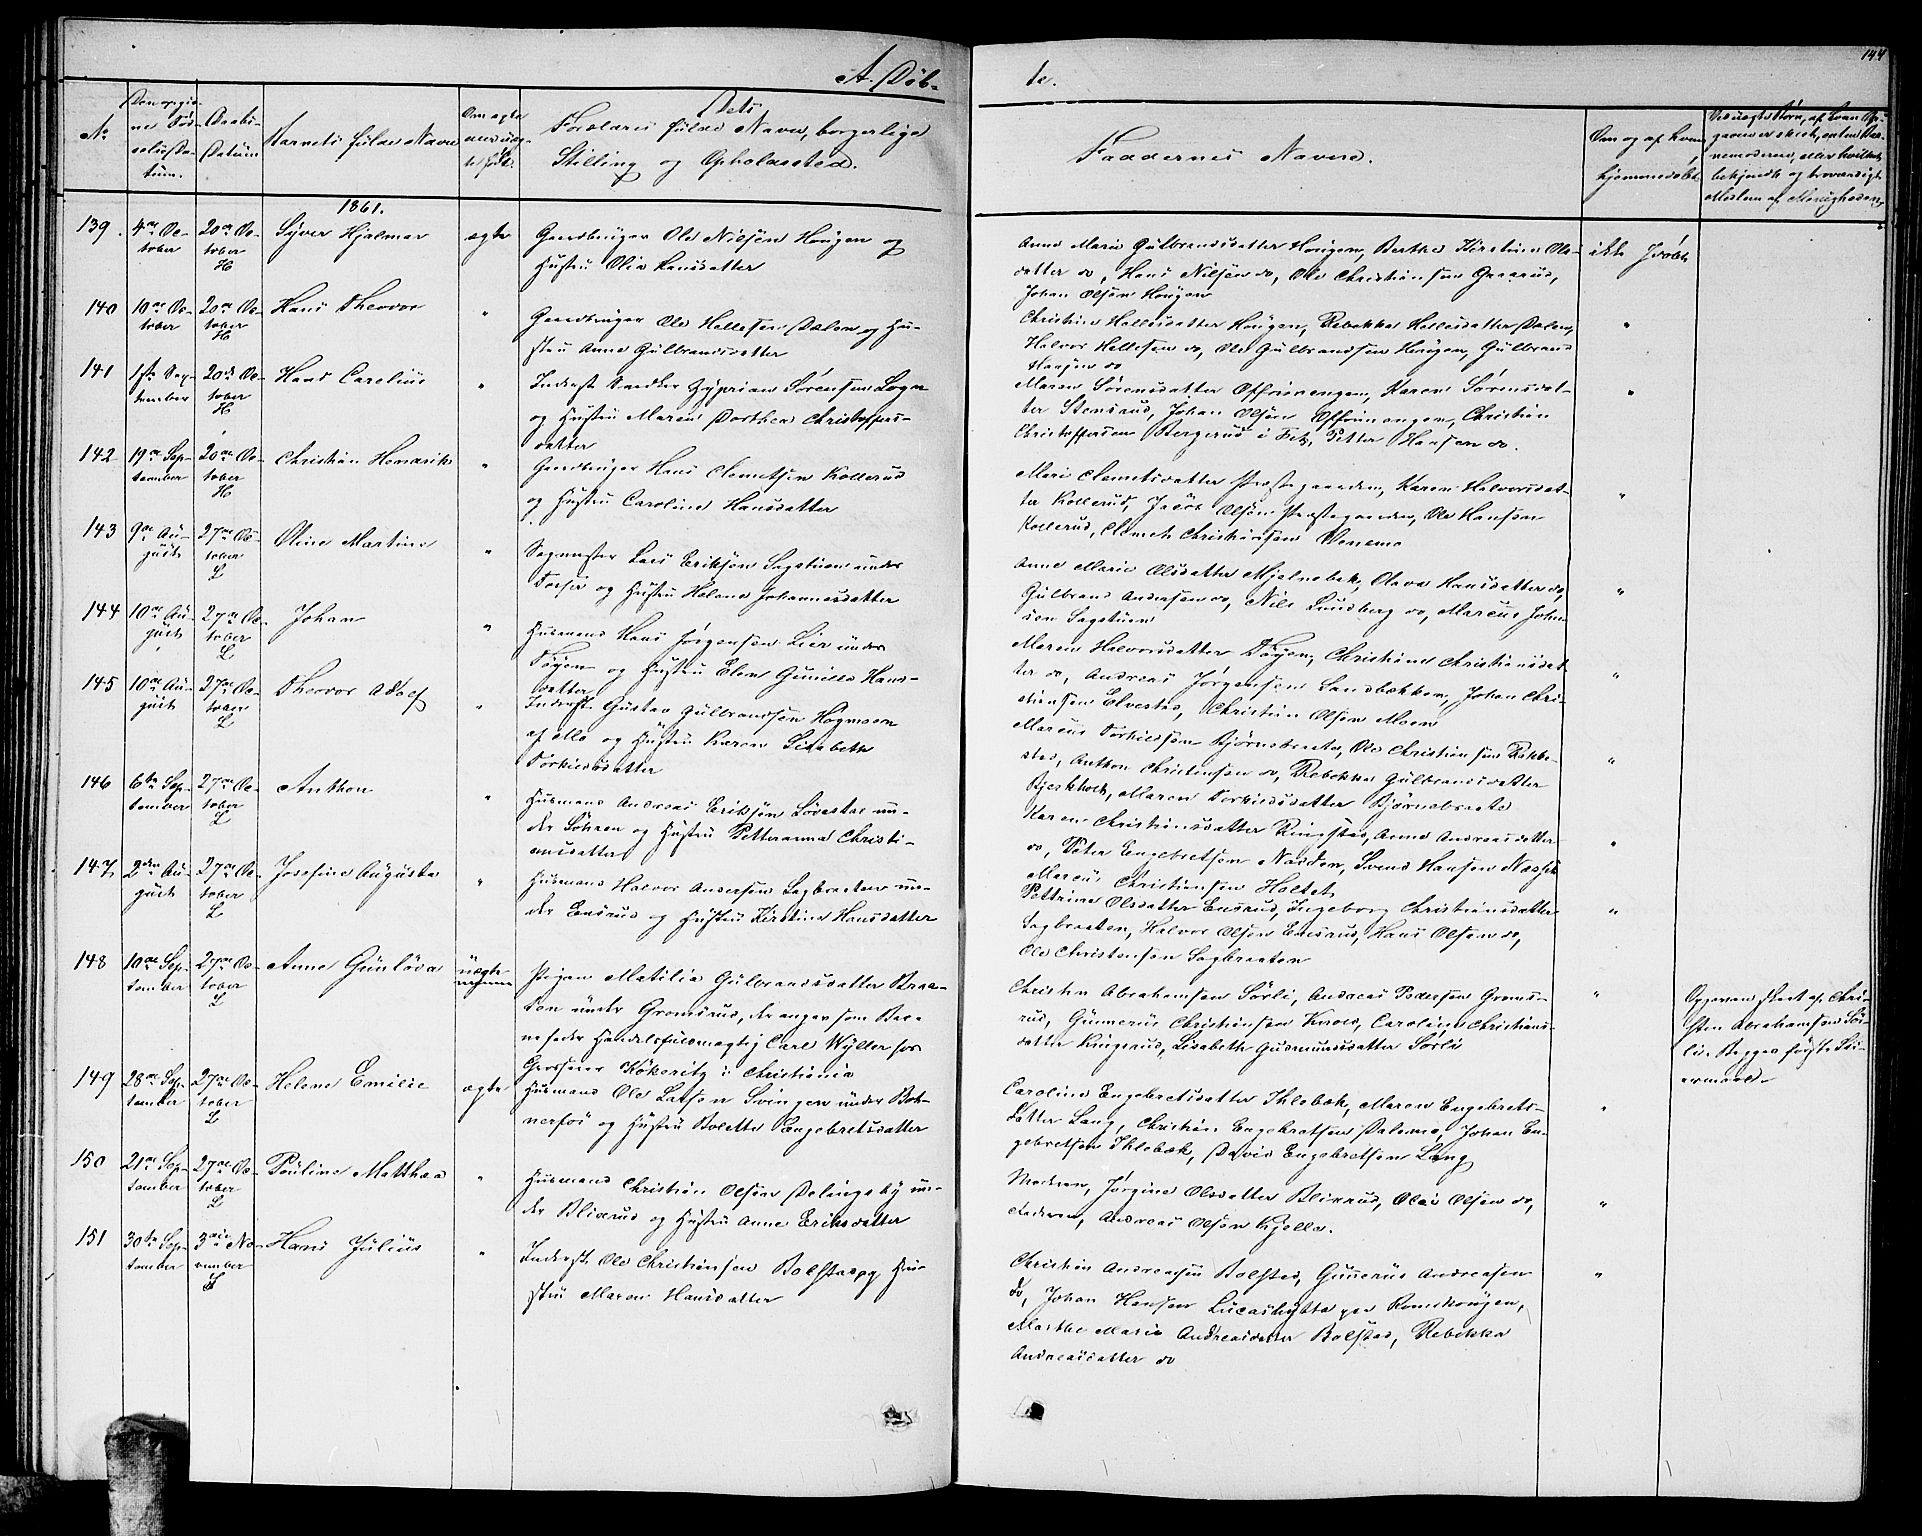 144
A. Døb-
te.
No
Den opgiv-
ne Fød-
selsda-
tum.
Daabs-
Datum
Barnets fulde Navn
Om ægte
eller uæg-
te født.
Dets
Forældres fulde Navn, borgerlige
Stilling og Opholdssted.
Faddernes Navne.
Om og af hvem
hjemmedøbt
1861.
139. 4de Oc-
tober
20de Oc-
tober
H
Syver Hjalmar
ægte
Gaardbruger Ole Nilsen Hougen og
Hustru Olia Hansdatter
Anne Marie Gulbrandsdatter Hougen, Berthe Kirstine Ols-
datter do, Hans Nilsen do, Ole Christiansen Graarud,
Johan Olsen Hougen
ikke Jvdøbt
140 10de Oc-
tober
20de Oc-
tober
H
Hans Theodor
"
Gaardbruger Ole Hellesen Dalen og Hu-
stru Anne Gulbrandsdatter
Christine Hellesdatter Hougen, Rebekka Hellesdatter Dalen,
Halvor Hellesen do, Ole Gulbrandsen Hougen, Gulbrand
Hansen do
"
141 1ste Sep-
tember
20de Oc-
tober
H
Hans Carelius
"
Inderst Snedker Zyprian Sørensen Sogn
og Hustru Maren Dorthea Christoffers-
datter
Maren Sørensdatter Offerinengen, Karen Sørensdat-
ter Stensrud, Johan Olsen Offerinengen, Christian
Christoffersen Bergerud i Fet, Petter Hansen do.
"
142 19de Sep-
tember
20de Oc-
tober
H
Christian Hendrik
"
Gaardbruger Hans Clemetsen Kollerud
og Hustru Caroline Hansdatter
Mari Clemetsdatter Præstegaarden, Karen Halvorsdat-
ter Kollerud, Jacob Olsen Præstegaarden, Ole Hansen
Kollerud, Clemet Christiansen
"
143 9de Au-
gust
27de Oc-
tober
L
Oline Martine
"
Sagmester Lars Eriksen Sagstuen under
og Hustru Helene Johannesdatter
Anne Marie Olsdatter Mjelnebek, Olava Hansdatter do,
Gulbrand Andersen do, Nils Lundberg do, Marcus John-
sen Sagstuen
"
144 10de Au-
gust
27de Oc-
tober
L
Johan
"
Husmand Hans Jørgensen Lier under
Tøyen og Hustru Elen Gunilda Hans-
datter
Maren Halvorsdatter Tøyen, Christine Christiansdat-
ter do, Andreas Jørgensen Sandbækken, Johan Chri-
stiansen Elvestad, Christian Olsen Moen
"
145 10de Au-
gust
27de Oc-
tober
L
Theodor Adolf
"
Inderst Gustav Gulbrandsen Høgmoen
af Mo og Hustru Karen Lisabeth
Torkildsdatter
Marcus Torkildsen Bjørnebraate, Ole Christiansen Rakke-
stad, Anthon Christensen do, Rebekka Gulbrandsdatter
Bjerkholt, Maren Torkildsdatter Bjørnebraate
"
146 6te Sep-
tember
27de Oc-
tober
L
Anthon
"
Husmand Andreas Eriksen Løvestad un-
der Søhren og Hustru Petteranna Christi-
ansdatter
Karen Christiansdatter Ringstad, Anne Andreasdatter
do, Peter Engebretsen Nadden, Svend Hansen
Marcus Christiansen Holtet
"
147 2den Au-
gust
27de Oc-
tober
L
Josefine Augusta
"
Husmand Halvor Andersen Sagbraaten un-
der Ensrud og Hustru Kirstine Hansdatter
Pettrine Olsdatter Ensrud, Ingeborg Christiansdatter
Sagbraaten, Halvor Olsen Ensrud, Hans Olsen do,
Ole Christensen Sagbraaten
"
148 10de Sep-
tember
27de Oc-
tober
L
Anne Gunlova
uægte
Pigen Matilia Gulbrandsdatter Braa-
ten under Gromsrud, der angav som Bar-
nefader Handelsfuldmægtig Carl Wyller hos
Grosserer Kökeritz i Christiania
Christen Abrahamsen Sørli, Andreas Pedersen Groms-
rud, Gunnerus Christiansen Knold, Caroline Christians-
datter Krogerud, Lisabeth Gudmundsdatter Sørli
"
Opgaven skeet af Chri-
sten Abrahamsen Sør-
li. Begges første Lei-
ermaal.
149 28de Sep-
tember
27de Oc-
tober
L
Helene Emilie
ægte
Husmand Ole Larsen Svingen under Bot-
nerfos og Hustru Bolette Engebretsdatter
Caroline Engebretsdatter Ihlebæk, Maren Engebrets-
datter Lang, Christian Engebretsen Dalene, Johan En-
gebretsen Ihlebæk, David Engebretsen Lang
"
150 21de Sep-
tember
27de Oc-
tober
L
Pauline Matthea
"
Husmand Christian Olsen Dalingsby un-
der Blixrud og Hustru Anne Eriksdatter
Modren, Jørgine Olsdatter Blixrud, Olai Olsen do,
Faderen, Andreas Olsen Kjolle.
"
151 30te Sep-
tember
3die No-
vember
S
Hans Julius
"
Inderst Ole Christiansen Bolstad og Hu-
stru Maren Hansdatter
Christian Andreasen Bolstad, Gunerus Andreasen
do, Johan Hansen Lucashytta paa Romskougen,
Marthe Marie Andreasdatter Bolstad, Rebekka
Andreasdatter do
"